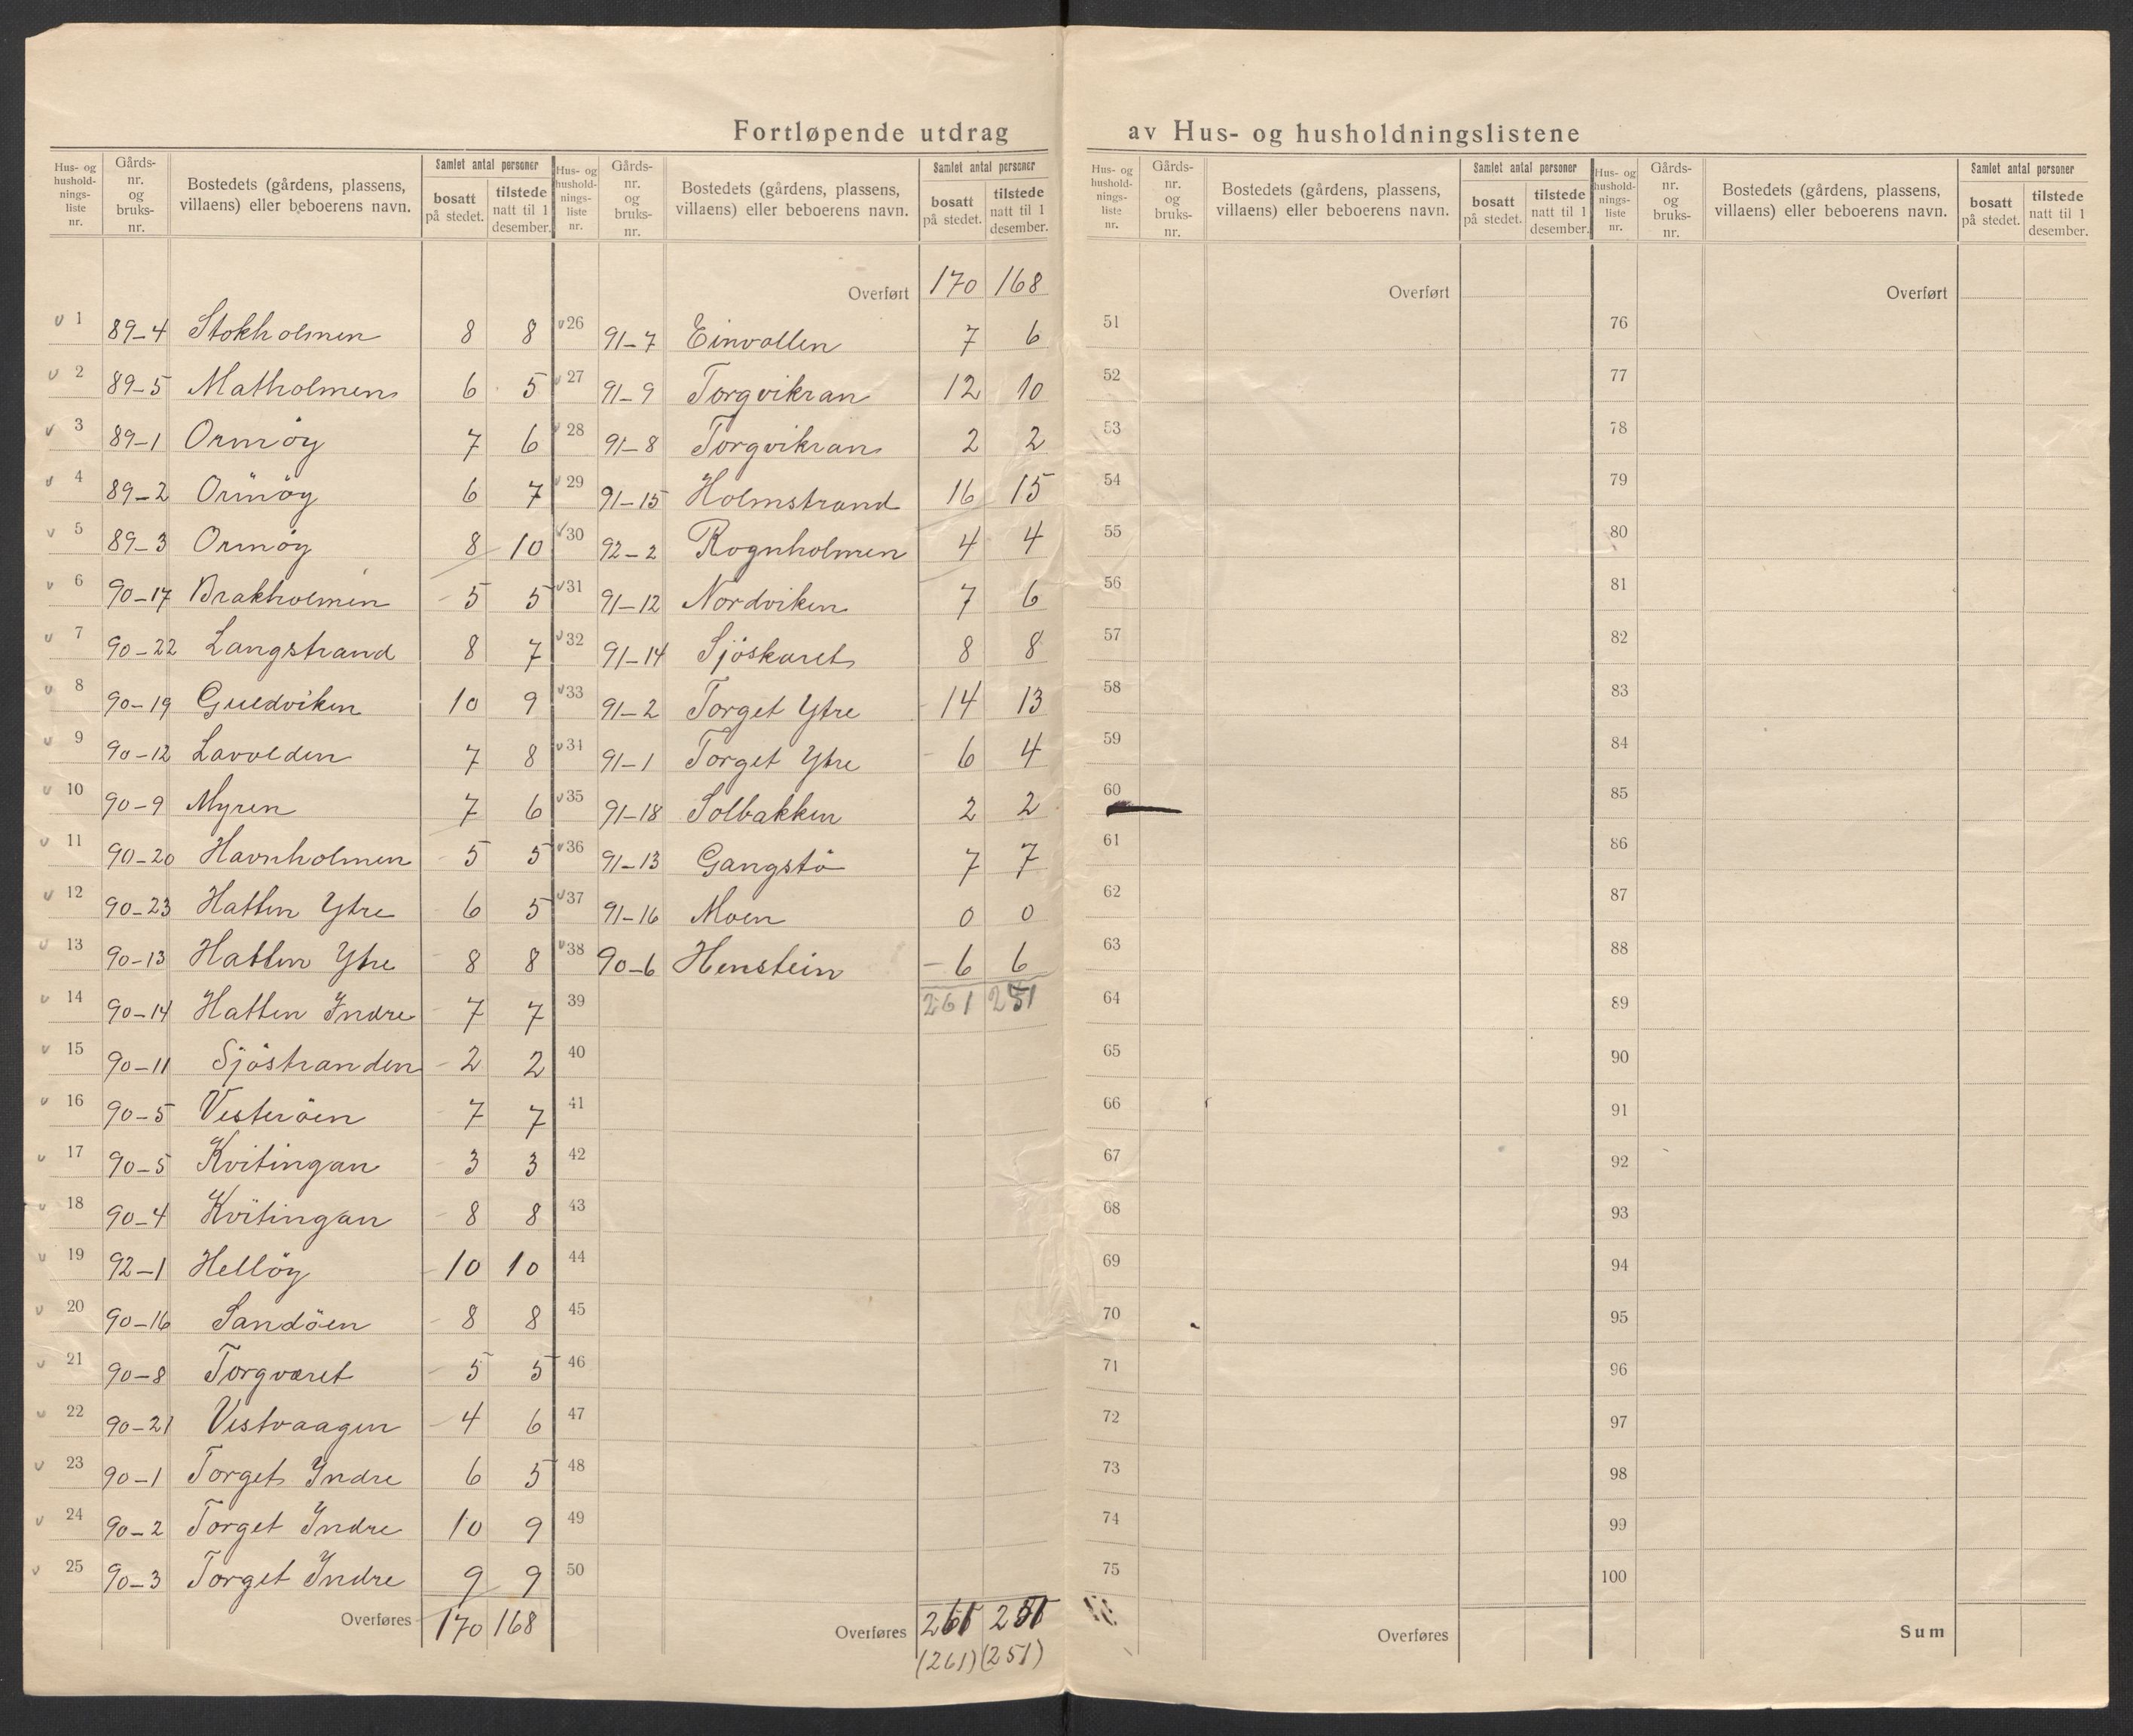 Fortløpende utdrag av Hus- og husholdningslistene
Hus- og husholdnings-liste nr. | Gårds-nr. og bruks-nr. | Bostedets (gårdens, plassens, villaens) eller beboerens navn. | Samlet antal personer | bosatt på stedet. | tilstede natt til 1 desember.
1 89-4 Stokholmen 8 8
2 89-5 Matholmen 6 5
3 89-1 Ormöy 7 6
4 89-2 Ormöy 6 7
5 89-3 Ormöy 8 10
6 90-17 Brakholmen 5 5
7 90-22 Langstrand 8 7
8 90-19 Guldviken 10 9
9 90-12 Lavolden 7 8
10 90-9 Myren 7 6
11 90-20 Havnholmen 5 5
12 90-23 Hatten Ytre 6 5
13 90-13 Hatten Ytre 8 8
14 90-14 Hatten Yndre 7 7
15 90-11 Sjöstranden 2 2
16 90-5 Vesteröen 7 7
17 90-5 Kvitingan 3 3
18 90-4 Kvitingan 8 8
19 92-1 Hellöy 10 10
20 90-16 Sandöen 8 8
21 90-8 Torgværet 5 5
22 90-21 Vestvaagen 4 6
23 90-1 Torget Yndre 6 5
24 90-2 Torget Yndre 10 9
25 90-3 Torget Yndre 9 9
Overføres 170 168
Hus- og husholdnings-liste nr. | Gårds-nr. og bruks-nr. | Bostedets (gårdens, plassens, villaens) eller beboerens navn. | Samlet antal personer | bosatt på stedet. | tilstede natt til 1 desember.
Overført 170 168
26 91-7 Einvollen 7 6
27 91-9 Torgvikran 12 10
28 91-8 Torgvikran 2 2
29 91-15 Holmstrand 16 15
30 92-2 Rognholmen 4 4
31 91-12 Nordviken 7 6
32 91-14 Sjöskaret 8 8
33 91-2 Torget Ytre 14 13
34 91-1 Torget Ytre 6 4
35 91-18 Solbakken 2 2
36 91-13 Gangstö 7 7
37 91-16 Moen 0 0
38 90-6 Henstein 6 6
39 261 251
40
41
42
43
44
45
46
47
48
49
50
Overføres 261 251
(261) (251)
Hus- og husholdnings-liste nr. | Gårds-nr. og bruks-nr. | Bostedets (gårdens, plassens, villaens) eller beboerens navn. | Samlet antal personer | bosatt på stedet. | tilstede natt til 1 desember.
Overført
51
52
53
54
55
56
57
58
59
60
61
62
63
64
65
66
67
68
69
70
71
72
73
74
75
Overføres
Hus- og husholdnings-liste nr. | Gårds-nr. og bruks-nr. | Bostedets (gårdens, plassens, villaens) eller beboerens navn. | Samlet antal personer | bosatt på stedet. | tilstede natt til 1 desember.
Overført
76
77
78
79
80
81
82
83
84
85
86
87
88
89
90
91
92
93
94
95
96
97
98
99
100
Sum